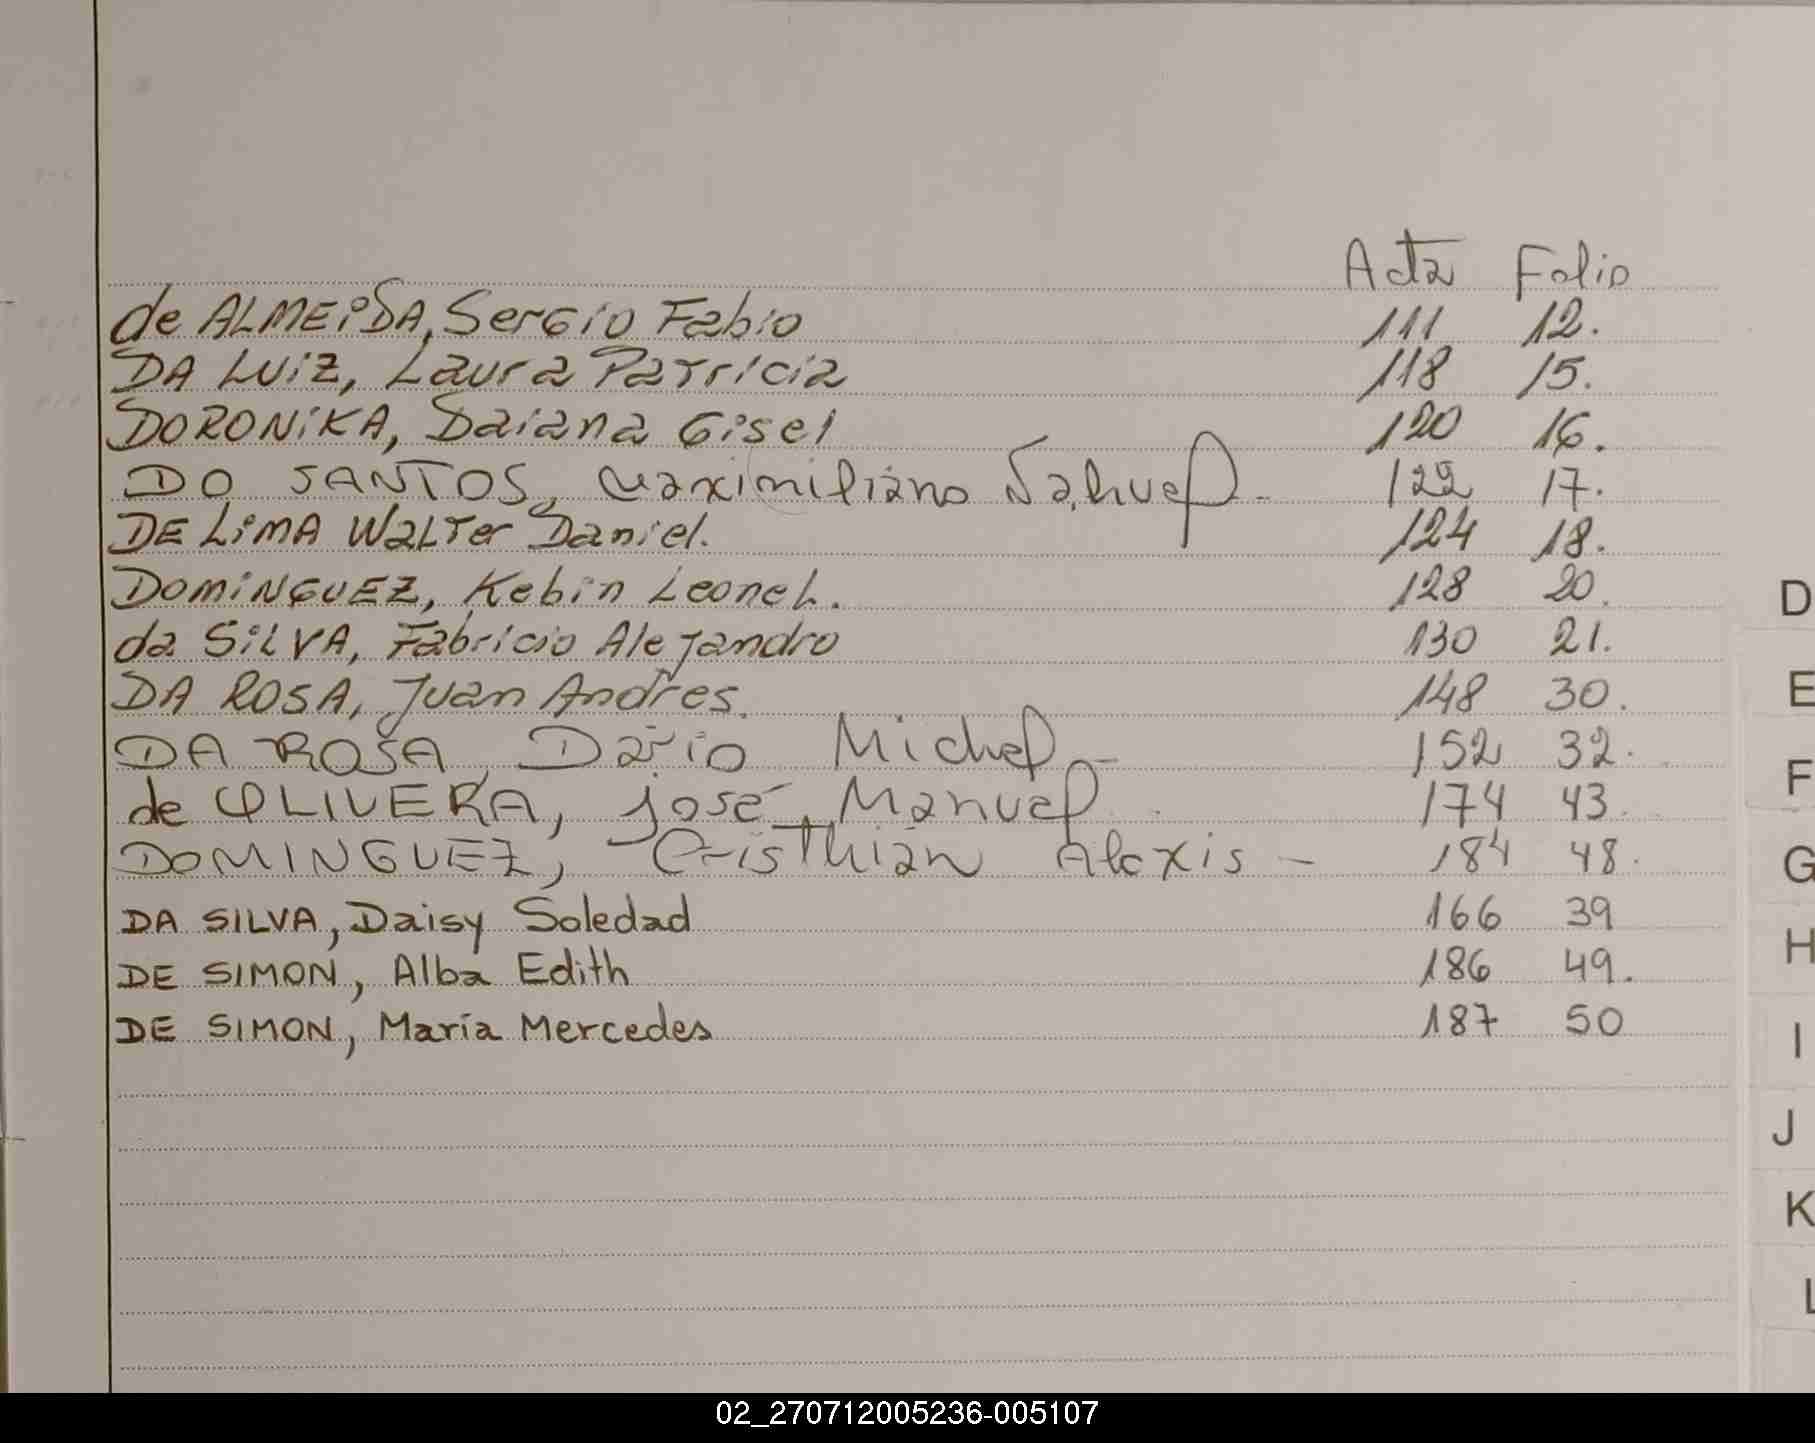 Acta Folio
de ALMEiDA, Sergio Fabio 111 12.
DA LUiZ, Laura Patricia 118 15.
DORONiKA, Daiana Gisel 120 16.
DO SANTOS, Maximiliano Nahuel - 122 17.
DE LiMA Walter Daniel. 124 18.
DOMiNGUEZ, Kebin Leonel. 128 20.
da SiLVA, Fabricio Alejandro 130 21.
DA ROSA, Juan Andres. 148 30.
DA ROSA, Dario Michel - 152 32.
de OLIVERA, José Manuel 174 43.
DOMINGUEZ, Cristhian Alexis - 184 48.
DA SILVA, Daisy Soledad 166 39
DE SIMON, Alba Edith 186 49.
DE SIMON, María Mercedes 187 50
D
E
F
G
H
I
J
K
L
02_270712005236-005107